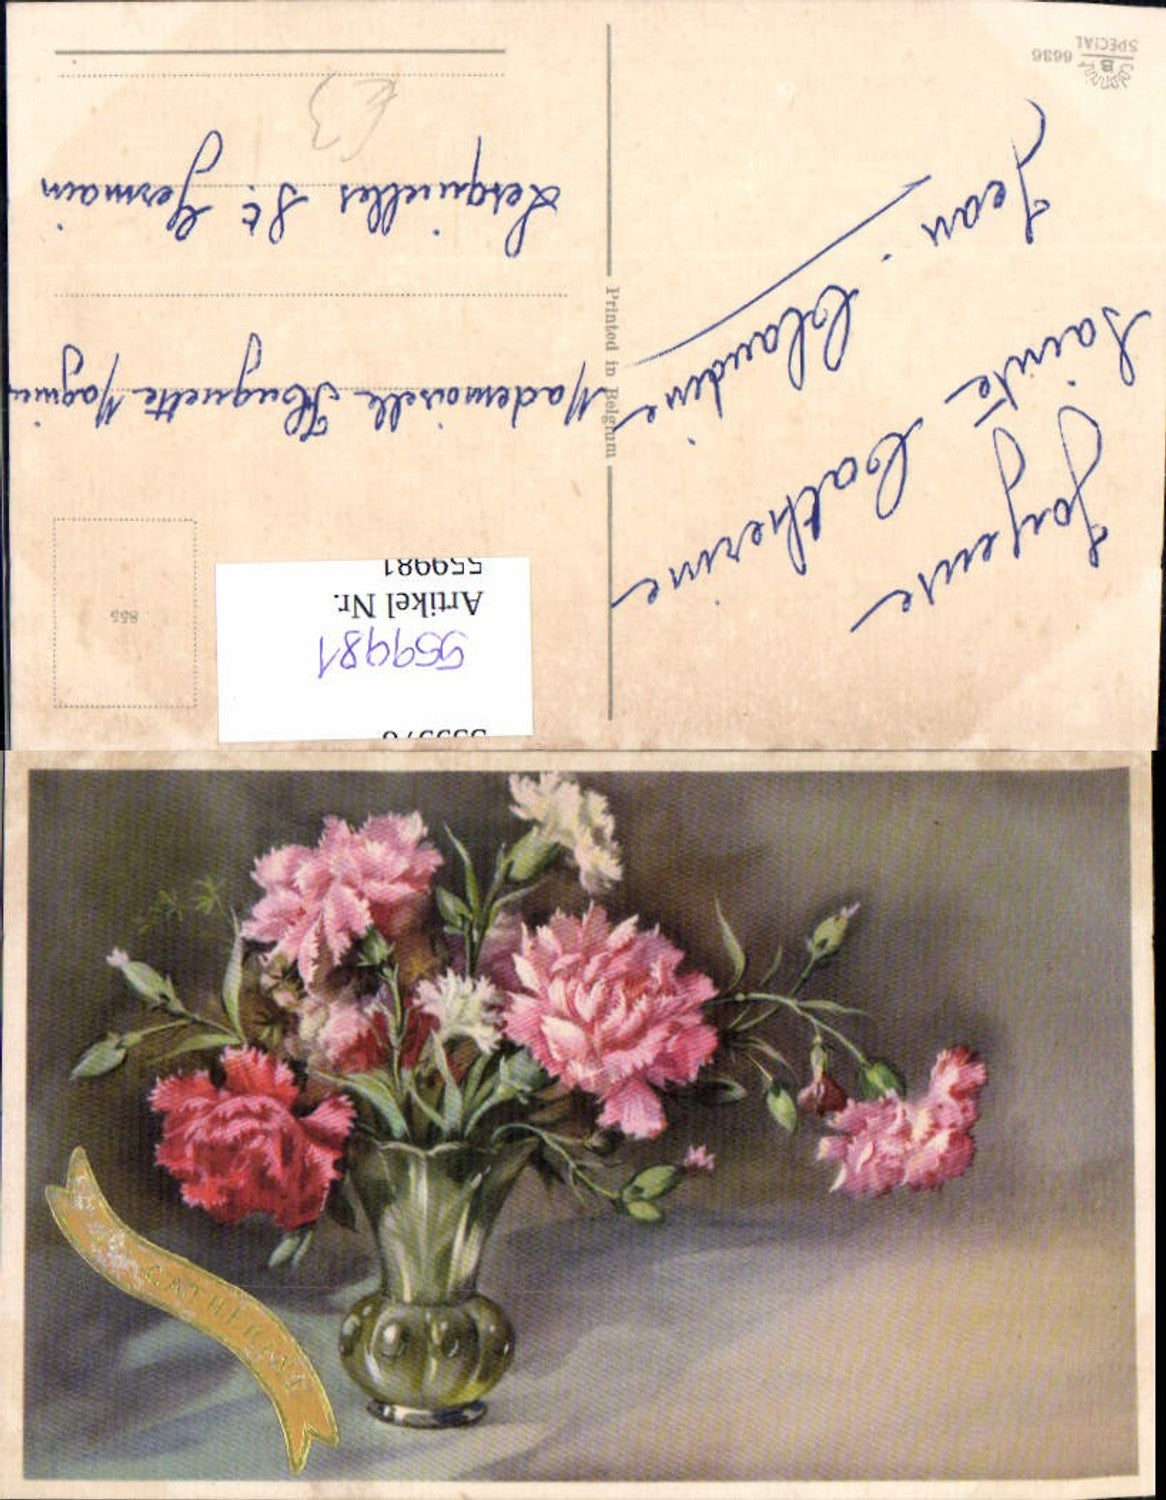 COLORPRINT
B
SPECIAL 6636
Joyeuse
Sainte Catherine
Jean-Claudine
Printed in Belgium
855
Mademoiselle Huguette Magnier
Lesquielles St. Germain
559981
Artikel Nr.
559981
CATHERINE